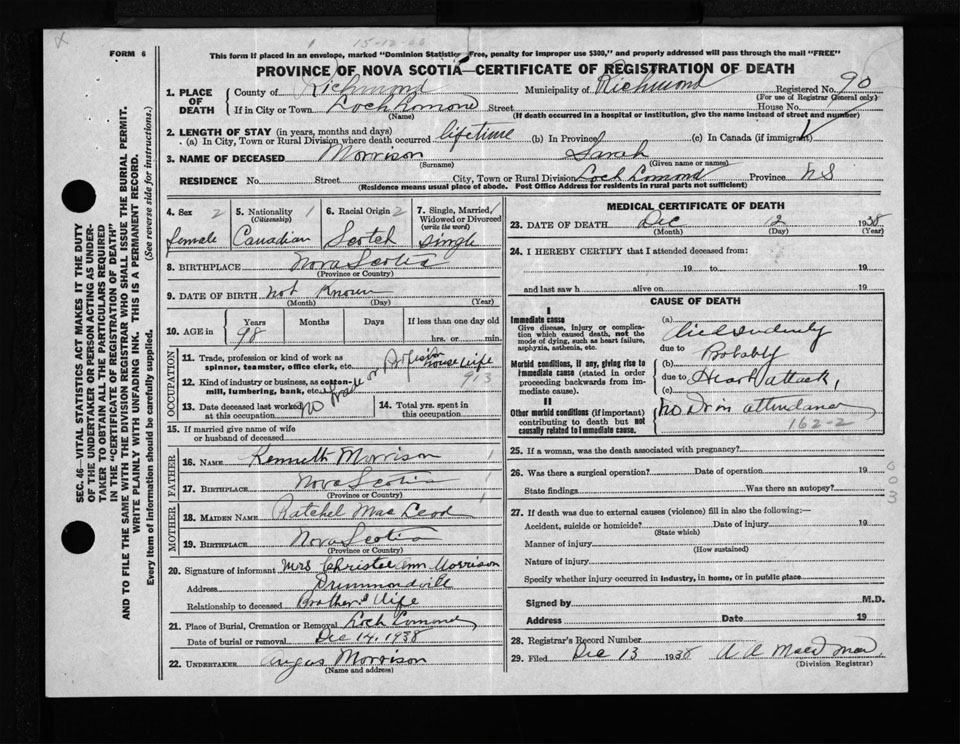 15-12-60
FORM 6
This form if placed in an envelope, marked "Dominion Statistics Free, penalty for improper use $300," and properly addressed will pass through the mail "FREE"
PROVINCE OF NOVA SCOTIA—CERTIFICATE OF REGISTRATION OF DEATH
1. PLACE OF DEATH
County of Richmond Municipality of Richmond Registered No. 90
(For use of Registrar General only)
If in City or Town Loch Lomond Street House No.
(Name) (If death occurred in a hospital or institution, give the name instead of street and number)
2. LENGTH OF STAY (in years, months and days)
(a) In City, Town or Rural Division where death occurred lifetime (b) In Province (c) In Canada (if immigrant)
3. NAME OF DECEASED Morrison Sarah
(Surname) (Given name or names)
RESIDENCE No. Street City, Town or Rural Division Loch Lomond Province NS
(Residence means usual place of abode. Post Office Address for residents in rural parts not sufficient)
4. Sex 2 female
5. Nationality 1 (Citizenship) Canadian
6. Racial Origin 2 Scotch
7. Single, Married, Widowed or Divorced (write the word) 1 Single
8. BIRTHPLACE Nova Scotia
(Province or Country)
9. DATE OF BIRTH not Known
(Month) (Day) (Year)
10. AGE in Years Months Days If less than one day old
98 hrs. or min.
OCCUPATION
11. Trade, profession or kind of work as spinner, teamster, office clerk, etc. house wife
913
12. Kind of industry or business, as cotton-mill, lumbering, bank, etc. no trade or profession
13. Date deceased last worked at this occupation
14. Total yrs. spent in this occupation
15. If married give name of wife or husband of deceased
FATHER
16. NAME Kenneth Morrison 1
17. BIRTHPLACE Nova Scotia 1
(Province or Country)
MOTHER
18. MAIDEN NAME Ratchel Mac Leod 1
19. BIRTHPLACE Nova Scotia
(Province or Country)
20. Signature of informant Mrs Christie Ann Morrison
Address Drummondville
Relationship to deceased Brother's Wife
21. Place of Burial, Cremation or Removal Loch Lomond
Date of burial or removal Dec 14, 1938
22. UNDERTAKER Angus Morrison
(Name and address)
MEDICAL CERTIFICATE OF DEATH
23. DATE OF DEATH Dec 12 1938
(Month) (Day) (Year)
24. I HEREBY CERTIFY that I attended deceased from:
19 to 19
and last saw h alive on 19
CAUSE OF DEATH
I
Immediate cause
Give disease, injury or complication which caused death, not the mode of dying, such as heart failure, asphyxia, asthenia, etc.
(a) died suddenly
due to Probably
Morbid conditions, if any, giving rise to immediate cause (stated in order proceeding backwards from immediate cause).
(b)
due to Heart attack,
(c)
II
Other morbid conditions (if important) contributing to death but not causally related to immediate cause.
no Dr in attendance
162-2
25. If a woman, was the death associated with pregnancy?
26. Was there a surgical operation? Date of operation 19
State findings Was there an autopsy?
003
27. If death was due to external causes (violence) fill in also the following:—
Accident, suicide or homicide? Date of injury 19
(State which)
Manner of injury
(How sustained)
Nature of injury
Specify whether injury occurred in industry, in home, or in public place
Signed by M.D.
Address Date 19
28. Registrar's Record Number
29. Filed Dec 13 1938
(Division Registrar)
SEC. 46—VITAL STATISTICS ACT MAKES IT THE DUTY
OF THE UNDERTAKER OR PERSON ACTING AS UNDER-
TAKER TO OBTAIN ALL THE PARTICULARS REQUIRED
IN THE "CERTIFICATE OF REGISTRATION OF DEATH"
AND TO FILE THE SAME WITH THE DIVISION REGISTRAR WHO SHALL ISSUE THE BURIAL PERMIT.
WRITE PLAINLY WITH UNFADING INK. THIS IS A PERMANENT RECORD.
Every item of information should be carefully supplied. (See reverse side for instructions.)